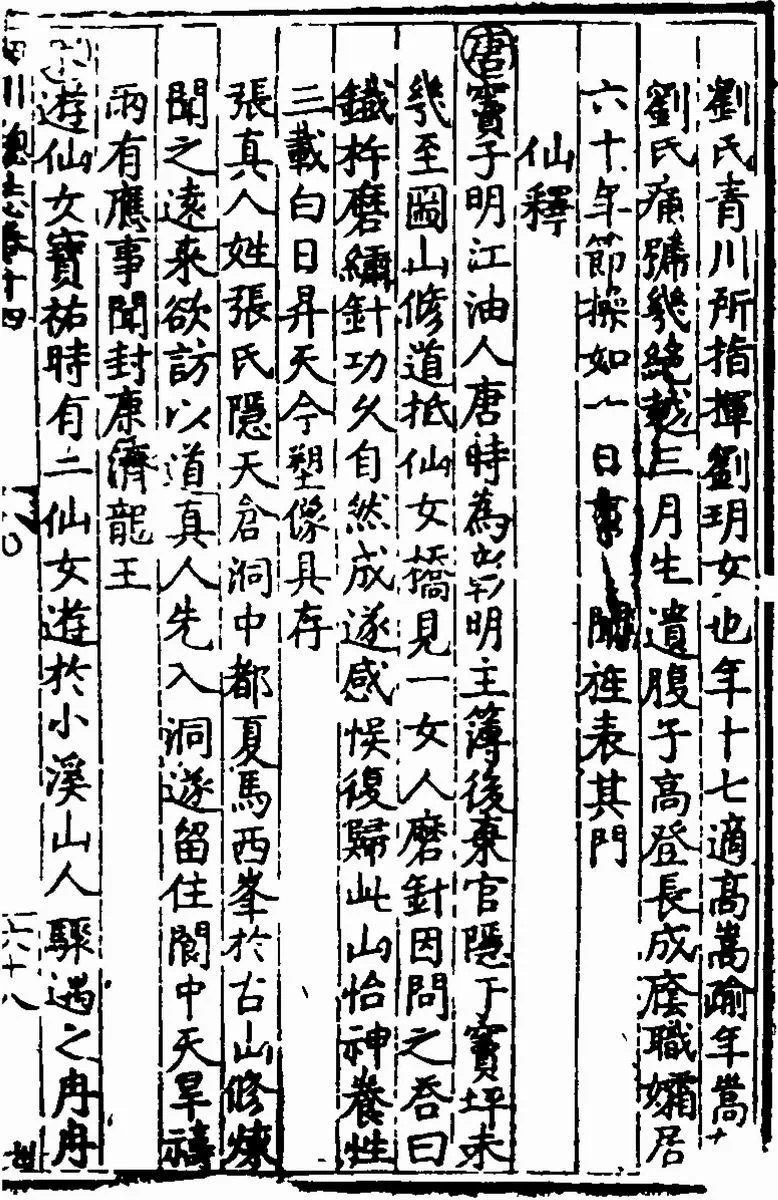 劉氏青川所指揮劉玥女也年十七適高嵩踰年嵩
劉氏痛號幾絕越三月生遺腹子高登長成廕職孀居
六十年節操如一日事聞旌表其門
仙釋
唐竇子明江油人唐時為彰明主簿後棄官隱于竇坪未
幾至圌山修道抵仙女橋見一女人磨針因問之答曰
鐵杵磨繡針功久自然成遂感悞復歸此山怡神養性
三載白日昇天今塑像具存
張真人姓張氏隱天倉洞中都夏馬西峯於古山修煉
聞之遠來欲訪以道真人先入洞遂留住閬中天旱禱
雨有應事聞封康濟龍王
遊仙女寶祐時有二仙女遊於小溪山人驟遇之冉冉
川總志卷十四
六十八